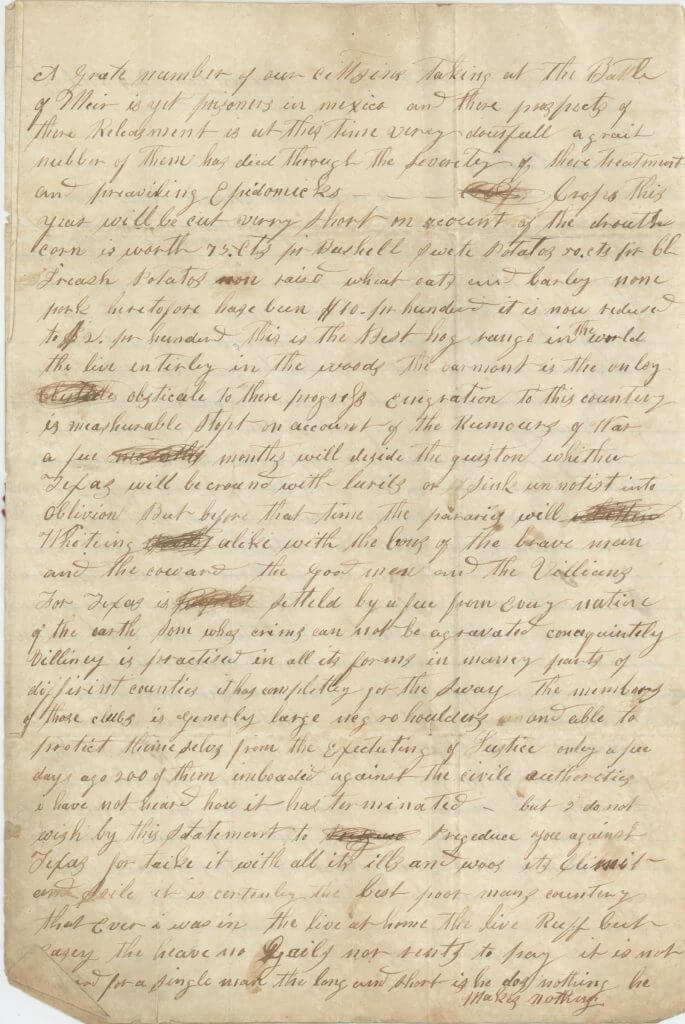 A Grate number of our cittsins taking at the Battle
of Meir is yet prisoners in mexico and there prospects of
there Releasment is at this time verry doutfull a grait
nubber of them has died through the severeity of there treatment
and prevailing Epidomicks Crops this
year will be cut verry short on account of the drouth
corn is worth 75.Cts pr Bushell Swete Potatos 50.cts pr bl
Irеash Potatos non raisd wheat oats and barley none
pork heretofore have been $10. pr hundred it is now redused
to $2. pr hundred this is the Best hog range in the world
the live enterley in the woods the varmont is the onley
obsticale to there progress Emigration to this country
is meashurable stopt on account of the Rumours of War
a fue months will deside the quistion whither
Texas will be cround with lurils or Sink unnotist into
Oblivion But before that time the pararies will
Whiting alike with the bons of the brave man
and the coward the Good men and the Villians
For Texas is setteld by a fue from Every nation
of the earth Som whos crims can not be agravated consequintely
Villiney is practised in all its forms in manney parts of
diffirint counties it has completley got the Sway the members
of those clubs is Generly large negro houlders and able to
protict themeselvs from the Executing of Justice only a fue
days ago 200 of them imbodied against the civile authorities
i have not heard how it has terminated - but I do not
wish by this statement to Pregeduce you against
Texas for taike it with all its ills and woos its Climit
and Soile it is certenley the best poor mans country
that Ever i was in the live at home the live Ruff but
easey the heave no Gails nor rents to pay it is not
for a single man the long and short is he dos nothing he
Makes nothing